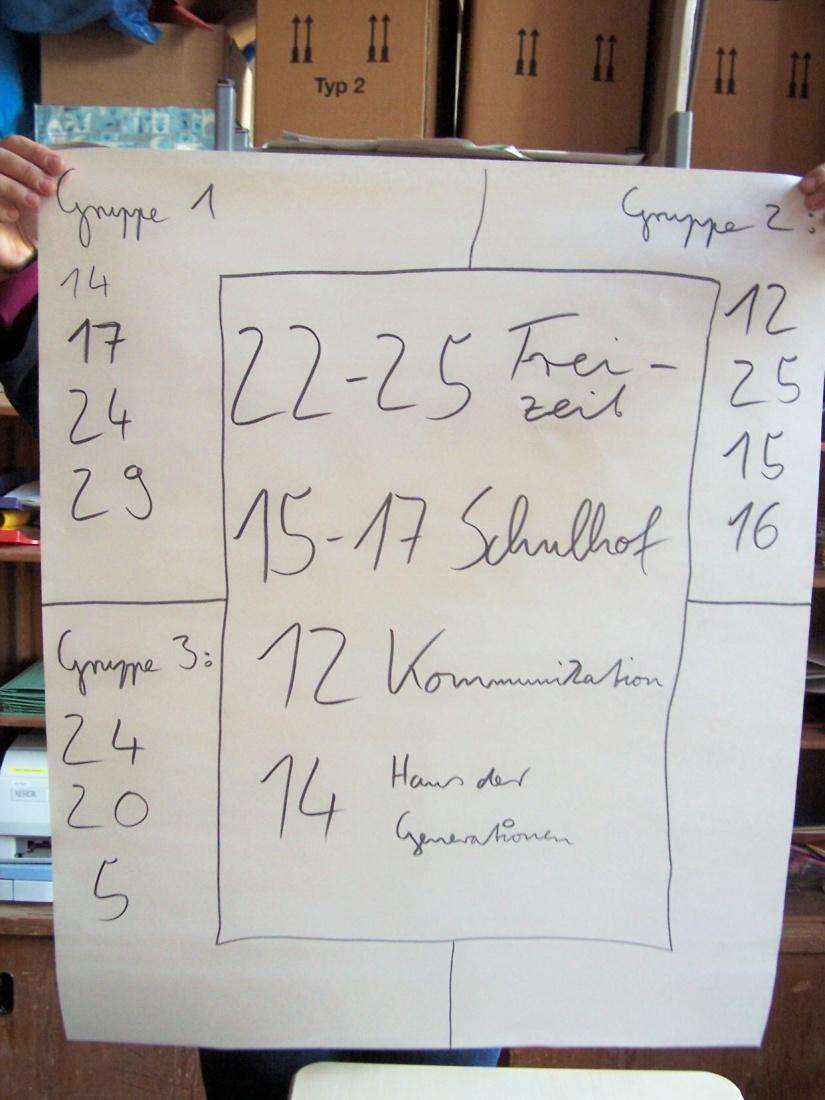 Typ 2
Gruppe 1
14
17
24
29
Gruppe 2:
12
25
15
16
22-25 Frei-
zeit
15-17 Schulhof
12 Kommunikation
14 Haus der
Generationen
Gruppe 3:
24
20
5
XEROX